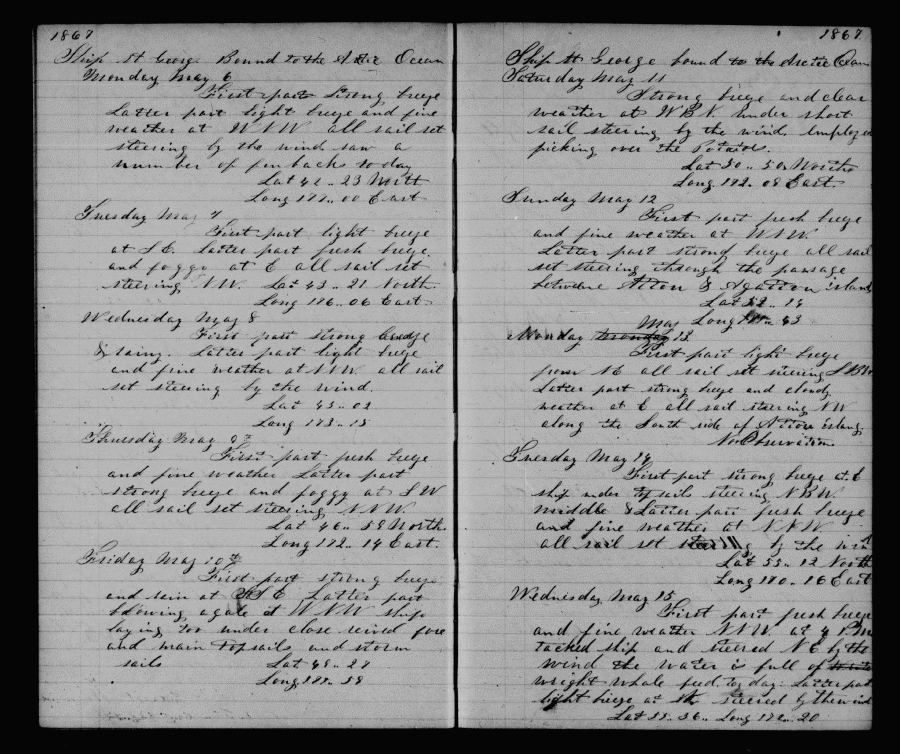 1867
Ship St George Bound to the Actic Ocean
Monday May 6
First part strong breeze
Latter part light breeze and fine
weather at WNW all sail set
steering by the wind saw a
number of finbacks to day
Lat 42 .. 23 North
Long 177 .. 00 East
Tuesday May 7
First part light breeze
at SE. latter part fresh breeze
and foggy at E all sail set
steering NW. Lat 43 .. 21 North
Long 176 .. 06 East
Wednesday May 8
First part strong breeze
& rainy. Latter part light breeze
and fine weather at NNW all sail
set steering by the wind.
Lat 45 .. 02
Long 173 .. 15
Thursday May 9th
First part fresh breeze
and fine weather Latter part
strong breeze and foggy at SW
all sail set steering NNW.
Lat 46 .. 58 North
Long 172 .. 14 East.
Friday May 10th
First part strong breeze
and rain at SSE Latter part
blowing a gale at WNW ship
laying too under close reived fore
and main topsails and storm
sails Lat 49 .. 27
Long 171 .. 58
1867
Ship St George bound to the Arctic Ocean
Saturday May 11
Strong breeze and clear
weather at WBN. under short
sail steering by the wind employed
picking over the Potatoes.
Lat 50 .. 50 North
Long 172 .. 08 East
Sunday May 12
First part fresh breeze
and fine weather at WNW.
Latter part strong breeze all sail
set steering through the passage
betweene Attou & Agattou island
Lat 52 .. 14
Long 43
Monday May 13
First part light breeze
from NE all sail set steering
Latter part strong breeze and cloudy
weather at E all sail steering NW
along the South side of Attou island
No Observation
Tuesday May 14
First part strong breeze at E
ship under topsails steering NBW.
middle & Latter part fresh breeze
and fine weather at NNW
all sail set by the wind
Lat 55 .. 12 North
Long 170 .. 16 East
Wednesday May 15
First part fresh breeze
and fine weather NNW. at 4 P.M
tacked ship and steered NE by the
wind the water is full of
wright whale feed to day. Latter part
light breeze at steered by the wind
Lat 55 .. 36 .. Long 172 .. 20